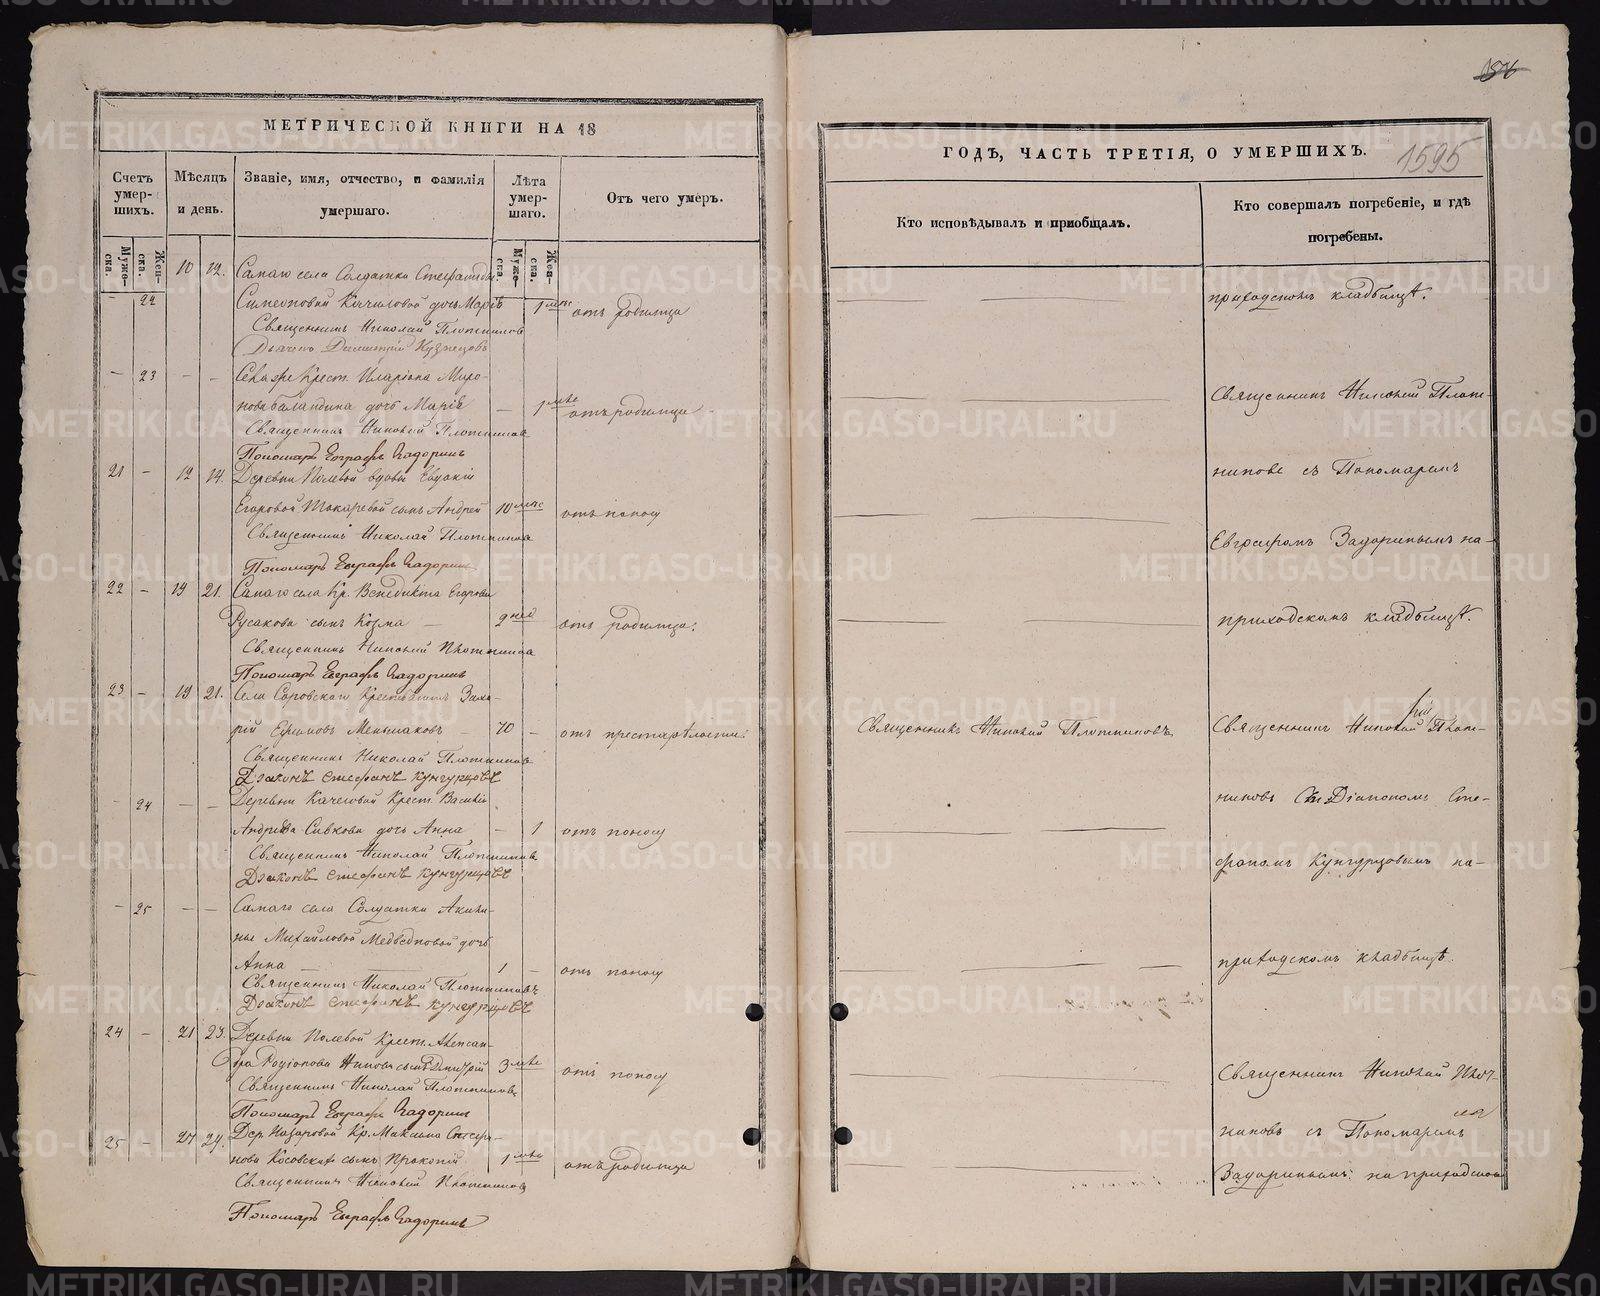 МЕТРИЧЕСКОЙ КНИГИ НА 18
Счетъ умер-шихъ.
Мѣсяцъ и день.
Званіе, имя, отчество, и фамилія умершаго.
Лѣта умер-шаго.
Отъ чего умеръ.
Муже-ска.
Жен-ска.
Муже-ска.
Жен-ска.
10 12. Самаго села Солдатки
22 Симеоновой дочь Марія 1 мѣс отъ родимца
Священникъ Николай Плотниковъ
Дьячекъ Димитрій Кузнецовъ
23 Крест. Иларіона Миро-
нова Баландина дочь Марія 1 мѣс отъ родимца
Священникъ Николай Плотниковъ
Пономарь Евграфъ Задоринъ
21 – 12 14. Деревни Полевой вдовы Евдокіи
Егоровой Токаревой сынъ Андрей 10 мѣс отъ поносу
Священникъ Николай Плотниковъ
Пономарь Евграфъ Задоринъ
22 – 19 21. Самаго села Кр. Венедикта Егорова
Русакова сынъ Козма 2 дней отъ родимца.
Священникъ Николай Плотниковъ
Пономарь Евграфъ Задоринъ
23 – 19 21. Села Крестьянинъ Заха-
рій Ефимовъ Меншаковъ 70 – отъ престарѣлости.
Священникъ Николай Плотниковъ
Діаконъ Стефанъ Кунгурцовъ
– 24 – – Деревни Крест. Василія
Андреева Сивкова дочь Анна – 1 отъ поносу
Священникъ Николай Плотниковъ
Діаконъ Стефанъ Кунгурцовъ
– 25 – – Самаго села Солдатки Акили-
ны Михайловой Медвѣдковой дочь
Анна 1 – отъ поносу
Священникъ Николай Плотниковъ
Діаконъ Стефанъ Кунгурцовъ
24 – 21 23. Деревни Полевой Крест. Алексан-
дра Родіонова сынъ Дмитрій 3 мѣс отъ поносу
Священникъ Николай Плотниковъ
Пономарь Евграфъ Задоринъ
25 – 27 Дер. Назаровой Кр. Максима Стефа-
нова сынъ Прокопій 1 мѣс отъ родимца
Священникъ Николай Плотниковъ
Пономарь Евграфъ Задоринъ
ГОДЪ, ЧАСТЬ ТРЕТІЯ, О УМЕРШИХЪ.
1595
Кто исповѣдывалъ и приобщалъ.
Кто совершалъ погребеніе, и гдѣ погребены.
приходскомъ кладбищѣ.
Священникъ Николай Плот-
никовъ съ Пономаремъ
Евграфомъ Задоринымъ на
приходскомъ кладбищѣ.
Священникъ Николай Плотниковъ
Священникъ Николай Плот-
никовъ съ Діакономъ Сте-
фаномъ Кунгурцовымъ на
приходскомъ кладбищѣ.
Священникъ Николай Плот-
никовъ съ Пономаремъ
Задоринымъ на приходском
METRIKI.GASO-URAL.RU